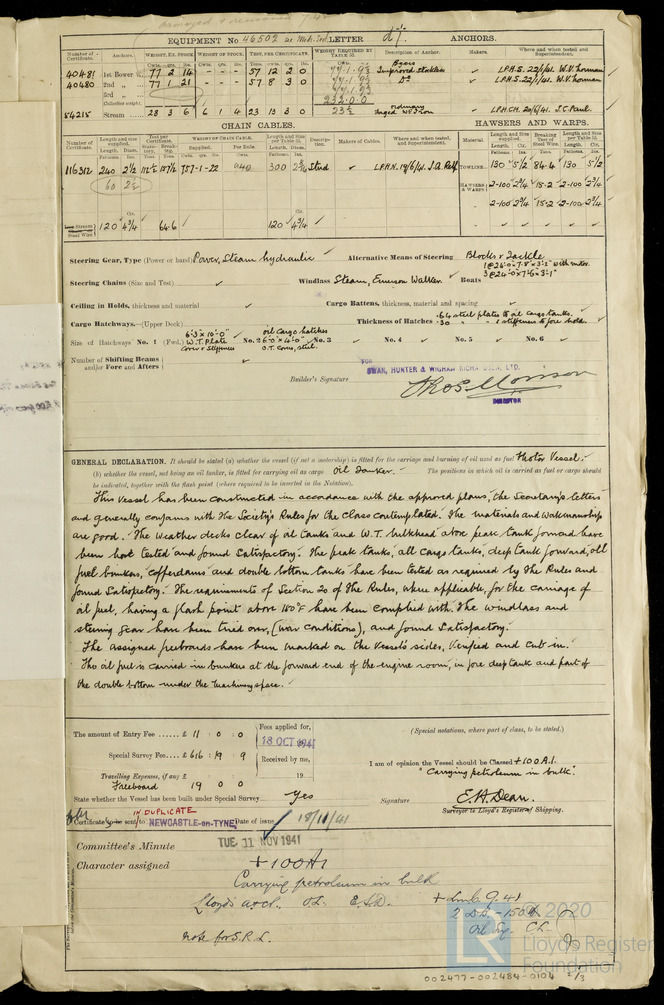 EQUIPMENT No 46502 LETTER d† ANCHORS.
Number of Certificate. Anchors. WEIGHT, EX. STOCK WEIGHT OF STOCK. TEST, PER CERTIFICATE. WEIGHT REQUIRED BY TABLE 31. Description of Anchor. Makers. Where and when tested and Superintendent.
40481 1st Bower 77 2 14 - - - 57 12 2 0 Byers Improved stockless ✓ L.P.H.S. 22/1/41. W.V. Horman
40480 2nd " 77 1 21 - - - 57 8 3 0 Do ✓ L.P.H.S. 22/1/41. W.V. Horman
3rd "
Collective weight 232.0.0
54215 Stream 23 3 6 6 1 4 23 13 3 0 23½ ordinary ✓ L.P.H.CH. 20/6/41. J.C. Paul.
CHAIN CABLES. HAWSERS AND WARPS.
Number of Certificate. Length and size supplied. Test per Certificate. WEIGHT OF CHAIN CABLE. Length and size per Table 31. Description. Makers of Cables. Where and when tested, and Superintendent. Material Length and size supplied. Breaking Test of Steel Wire. Length and size per Table 31.
Supplied. Per Rule.
116312 240 2½ 757-1-22 300 Stud ✓ L.P.H.N. 19/6/41. TOWLINE 130 5½ 84.4 130 5½
60 2½ HAWSERS & WARPS 2-100 2¾ 15.2 2-100 2¾
2-100 2¾ 15.2 2-100 2¾
Stream Steel Wire 120 4¾ 64.6 120 4¾
Steering Gear, Type (Power or hand) Power, Steam hydraulic ✓ Alternative Means of Steering Blocks & Tackle
Steering Chains (Size and Test) ✓ Windlass Steam, Emerson Walker ✓ Boats 1@26'0"x7'8"x3'2" with motor
3@24'0"x7'6"x3'1"
Ceiling in Holds, thickness and material ✓ Cargo Battens, thickness, material and spacing ✓
Cargo Hatchways.—(Upper Deck) Thickness of Hatches .64 steel plates to oil cargo tanks.
.30 " " & stiffeners to fore hold.
Size of Hatchways No. 1 (Fwd.) 6'-3"x10'-0" W.T. Plate Cover & Stiffeners No. 2 oil cargo hatches 6'0"x4'-0" O.T. Covers, steel. No. 3 ✓ No. 4 ✓ No. 5 ✓ No. 6 ✓
Number of Shifting Beams and/or Fore and Afters ✓
FOR
SWAN, HUNTER & WIGHAM RICHARDSON, LTD.
Builder's Signature Thos. Morison
DIRECTOR
GENERAL DECLARATION. It should be stated (a) whether the vessel (if not a motorship) is fitted for the carriage and burning of oil used as fuel Motor Vessel.
(b) whether the vessel, not being an oil tanker, is fitted for carrying oil as cargo Oil Tanker. The positions in which oil is carried as fuel or cargo should
be indicated, together with the flash point (where required to be inserted in the Notation).
This Vessel has been constructed in accordance with the approved plans, the Secretary's letters
and generally conforms with the Society's Rules for the Class contemplated. The materials and workmanship
are good. The weather decks clear of oil tanks and W.T. bulkhead above peak tank forward have
been hose tested and found Satisfactory. The peak tanks, all cargo tanks, deep tank forward, oil
fuel bunkers, cofferdams and double bottom tanks have been tested as required by the Rules and
found Satisfactory. The requirements of Section 20 of the Rules, where applicable, for the carriage of
oil fuel, having a flash point above 150°F have been complied with. The windlass and
steering Gear have been tried over, (war conditions), and found Satisfactory.
The assigned freeboards have been marked on the Vessel's sides, Verified and Cut in.
The oil fuel is carried in bunkers at the forward end of the engine room, in fore deep tank and part of
the double bottom under the machinery space.
The amount of Entry Fee ...... £ 11 : 0 : 0 Fees applied for, (Special notations, where part of class, to be stated.)
18 OCT 1941
Special Survey Fee.... £ 616 : 19 : 9 Received by me, I am of opinion the Vessel should be Classed +100A1.
"Carrying petroleum in bulk".
Travelling Expenses, if any £ 19
Freeboard 19 0 0
State whether the Vessel has been built under Special Survey Yes Signature E.H. Dean.
Surveyor to Lloyd's Register of Shipping.
IN DUPLICATE
Certificate to be sent to NEWCASTLE-ON-TYNE Date of issue 18/11/41
Committee's Minute TUE. 11 NOV 1941
Character assigned +100A1
Carrying petroleum in bulk
Lloyd's a&cp. O.L. E.S.D. + Lmb 9.41
2 D.B. - 150 lb.
note for S.R.L.
© 2020
LR
Lloyd's Register
Foundation
002477-002484-0104 2/3